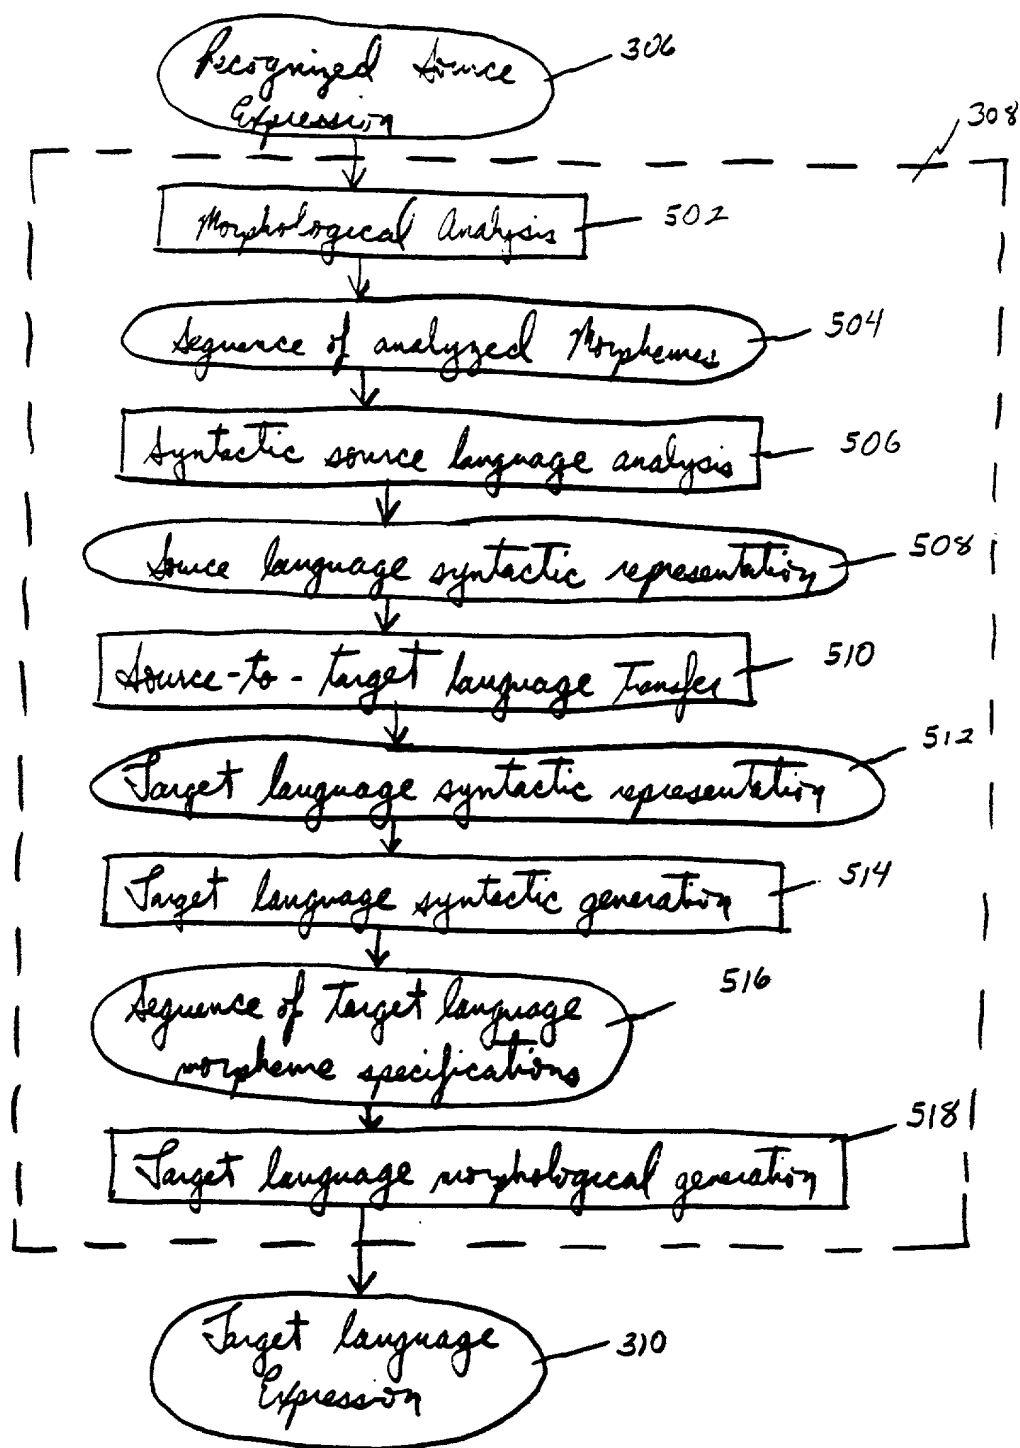 Recognized Source
Expression
306
308
Morphological Analysis
502
Sequence of analyzed Morphemes
504
Syntactic source language analysis
506
Source language syntactic representation
508
Source-to-target language Transfer
510
Target language syntactic representation
512
Target language syntactic generation
514
Sequence of Target language
morpheme specifications
516
Target language morphological generation
518
Target language
Expression
310